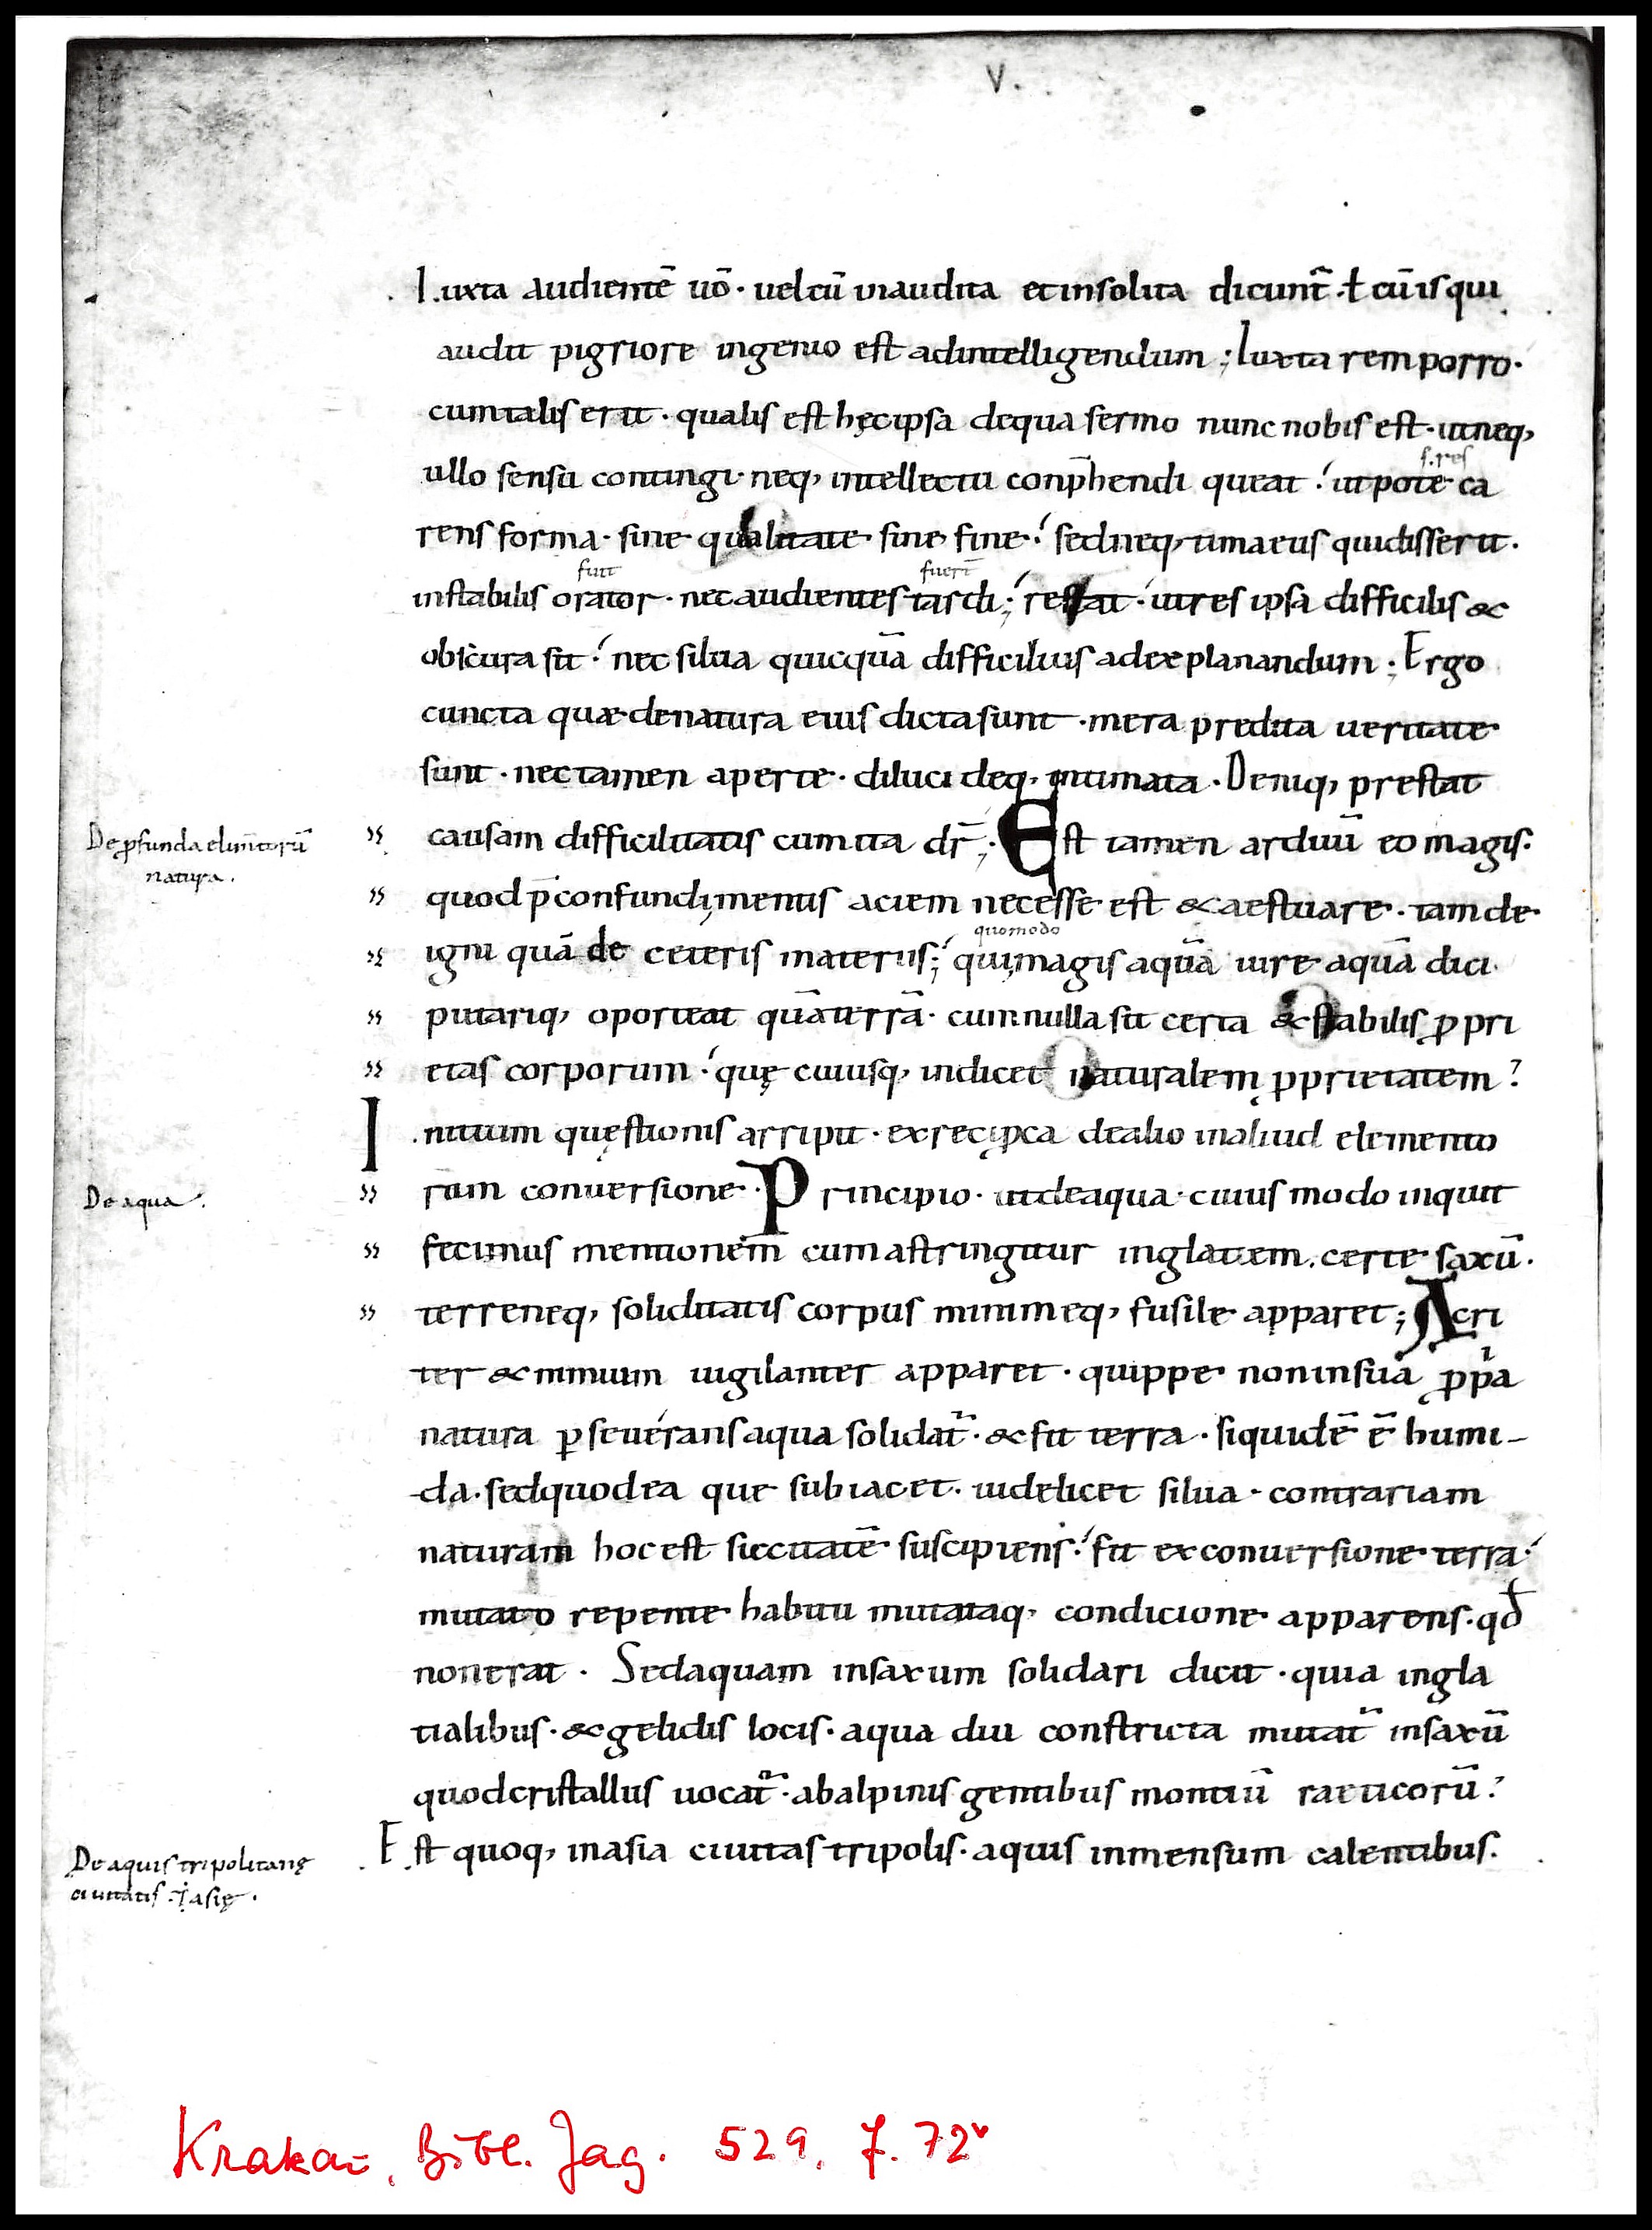 V.
Iuxta audientē uō · uel cū inaudita et insolita dicunt᷑ · ł cū is qui
audit pigriore ingenio est ad intelligendum ; Iuxta rem porro ·
cum talis erit · qualis est hęc ipsa de qua sermo nunc nobis est · ut neq;
s. res
ullo sensu contingi · neq; intellectu conp̄hendi queat · ut pote ca
rens forma · sine qualitate sine fine · sed neq; timaeus qui disserit ·
fuit fuerī
instabilis orator · nec audientes tardi ; restat · ut res ipsa difficilis &
obscura sit · nec silua quicquā difficilius ad explanandum ; Ergo
cuncta quæ de natura eius dicta sunt · mera predita ueritate
sunt · nec tamen aperte · dilucideq; intimata · Deniq; prestat
De ꝓfunda elim̄torū
natura .
causam difficultatis cum ita dr̄ ; Est tamen arduū eo magis ·
quod p̄confundi mentis aciem necesse est & aestuare · tam de
quomodo
igni quā de ceteris materiis ; qui magis aquā iure aquā dici
putariq; oporteat quā terrā · cum nulla sit certa & stabilis ꝓpri
etas corporum · quę cuiusq; indicet naturalem ꝓprietatem ?
Initium quęstionis arripit · ex reciproca de alio in aliud elemento
De aqua .
rum conuersione · Principio · ut de aqua · cuius modo inquit
fecimus mentionem cum astringitur in glatiem . certe saxū ·
terreneq; soliditatis corpus minimeq; fusile apparet ; Acri
ter & nimium uigilanter apparet · quippe non in sua ꝓpͥa
natura ꝑseuerans aqua solidat᷑ · & fit terra · siquidē ē humi-
da · sed quod ea que subiacet · uidelicet silua · contrariam
naturam hoc est siccitatē suscipiens · fit ex conuersione terra ·
mutato repente habitu mutataq; condicione apparens · qđ
non erat · Sed aquam in saxum solidari dicit · quia in gla
tialibus · & gelidis locis · aqua diu constricta mutat᷑ in saxū
quod cristallus uocat᷑ · ab alpinis gentibus montiū raeticorū ?
De aquis tripolitanę
ciuitatis · ī asię .
Est quoq; in asia ciuitas tripolis · aquis inmensum calentibus ·
Krakau, Bibl. Jag. 529, f. 72ᵛ